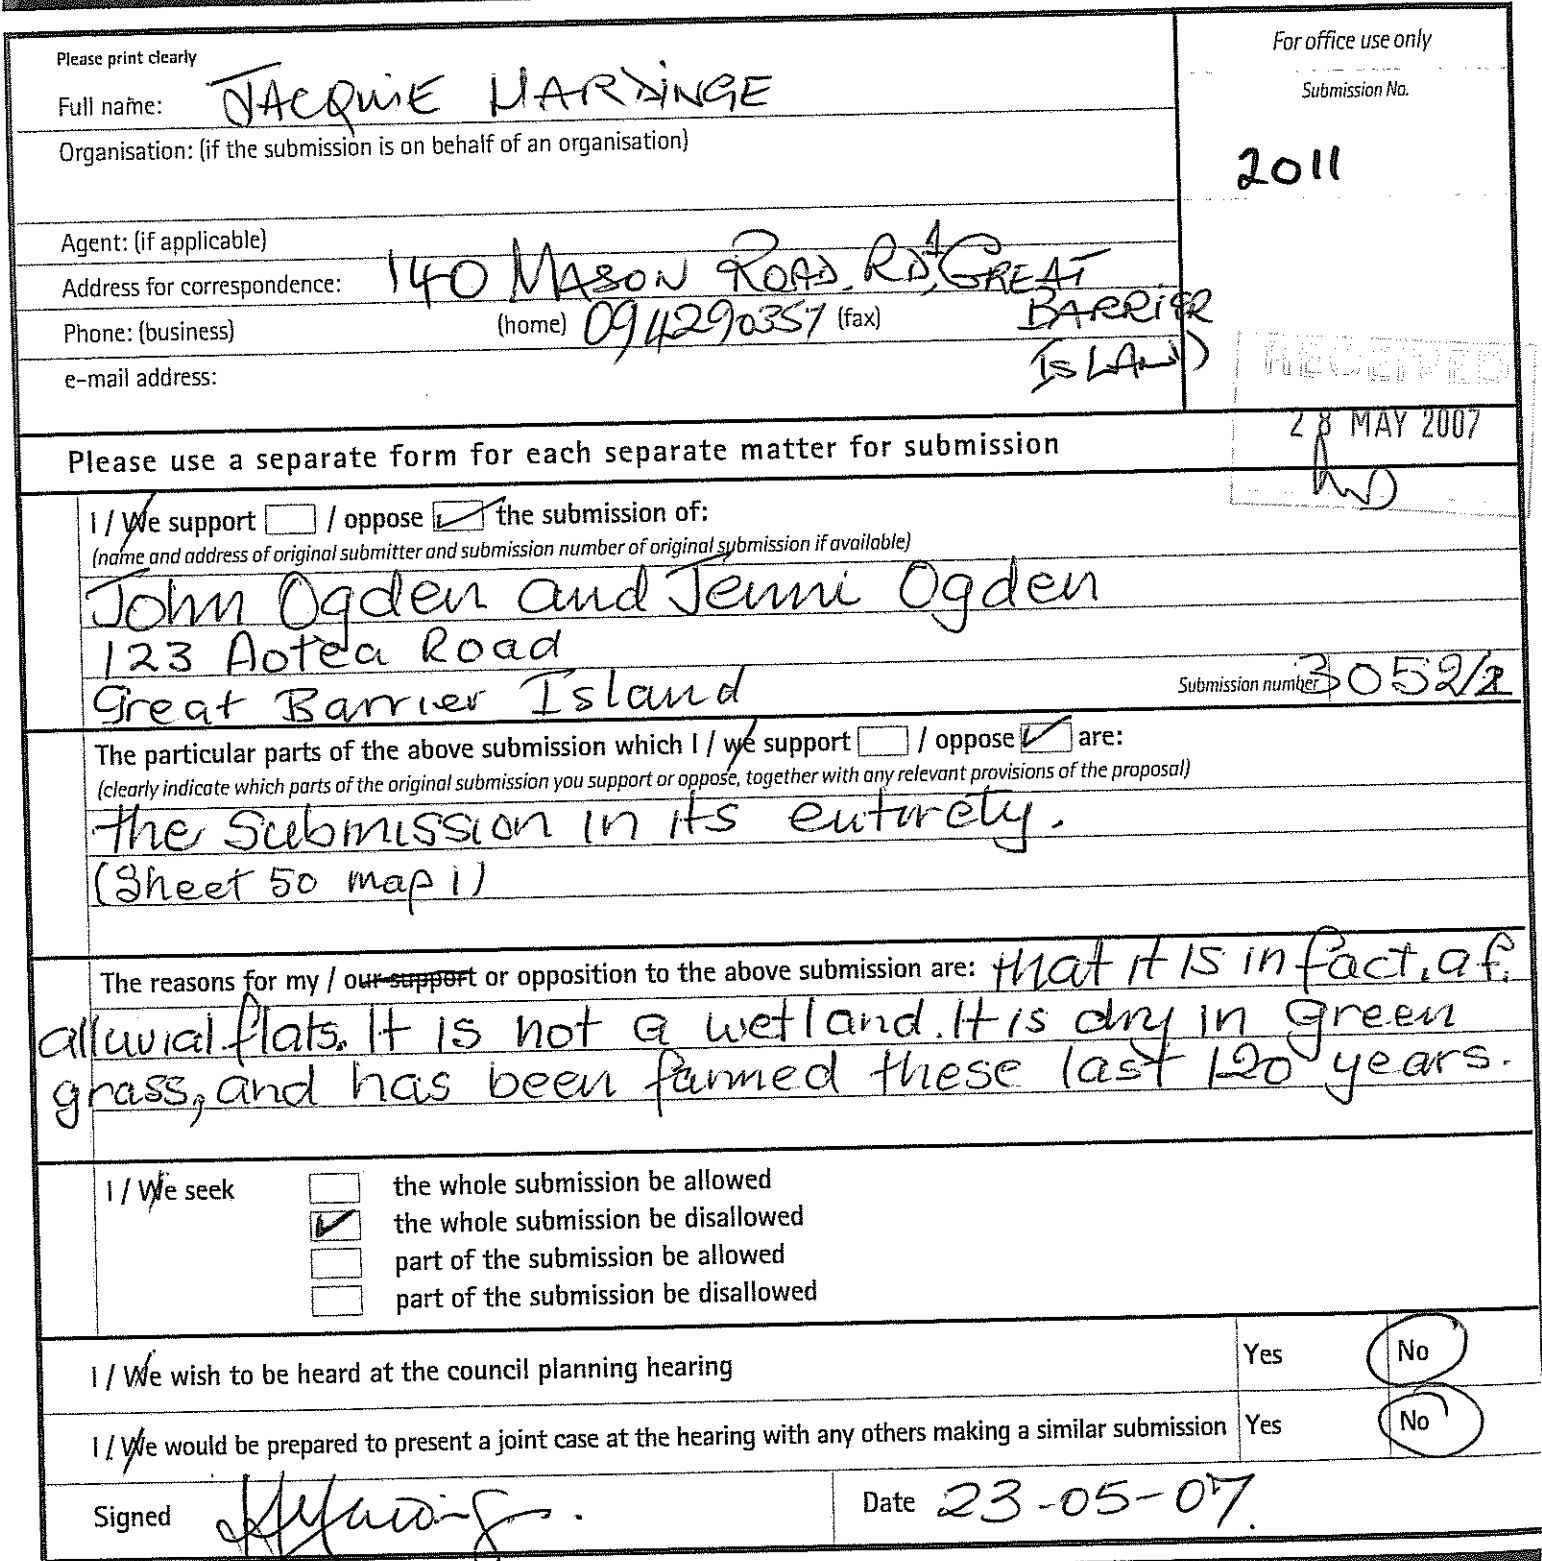 Please print clearly
Full name: JACQUIE HARDINGE
Organisation: (if the submission is on behalf of an organisation)
Agent: (if applicable)
Address for correspondence: 140 MASON ROAD, RD1, GREAT
BARRIER
ISLAND
Phone: (business) (home) 094290351 (fax)
e-mail address:
For office use only
Submission No.
2011
RECEIVED
28 MAY 2007
Please use a separate form for each separate matter for submission
I / We support / oppose ✓ the submission of:
(name and address of original submitter and submission number of original submission if available)
John Ogden and Jenni Ogden
123 Aotea Road
Great Barrier Island
Submission number 3052/2
The particular parts of the above submission which I / we support / oppose ✓ are:
(clearly indicate which parts of the original submission you support or oppose, together with any relevant provisions of the proposal)
the submission in its entirety.
(Sheet 50 map 1)
The reasons for my / our support or opposition to the above submission are: that it is in fact, a f.
alluvial flats. It is not a wetland. It is dry in green
grass, and has been farmed these last 120 years.
I / We seek
the whole submission be allowed
✓ the whole submission be disallowed
part of the submission be allowed
part of the submission be disallowed
I / We wish to be heard at the council planning hearing Yes No
I / We would be prepared to present a joint case at the hearing with any others making a similar submission Yes No
Signed
Date 23-05-07.